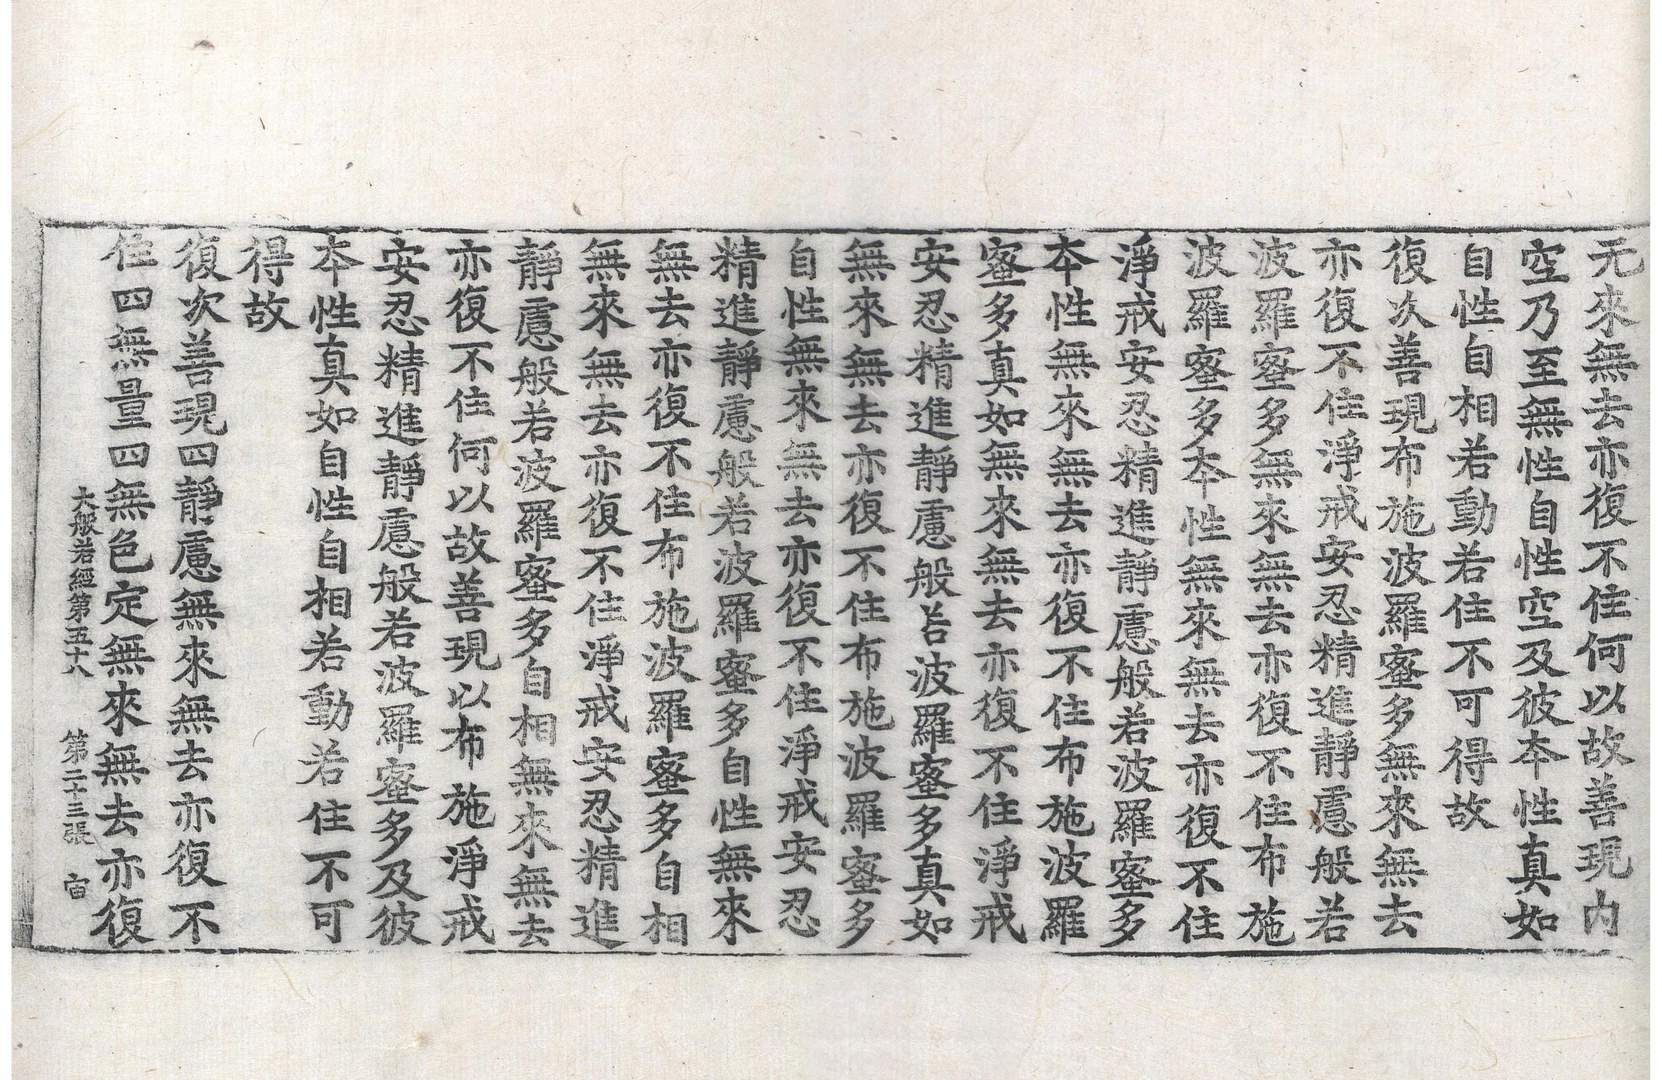 无來無去亦復不住何以故善現內
空乃至無性自性空及彼本性真如
自性自相若動若住不可得故
復次善現布施波羅蜜多無來無去
亦復不住淨戒安忍精進靜慮般若
波羅蜜多無來無去亦復不住布施
波羅蜜多本性無來無去亦復不住
淨戒安忍精進靜慮般若波羅蜜多
本性無來無去亦復不住布施波羅
蜜多真如無來無去亦復不住淨戒
安忍精進靜慮般若波羅蜜多真如
無來無去亦復不住布施波羅蜜多
自性無來無去亦復不住淨戒安忍
精進靜慮般若波羅蜜多自性無來
無去亦復不住布施波羅蜜多自相
無來無去亦復不住淨戒安忍精進
靜慮般若波羅蜜多自相無來無去
亦復不住何以故善現以布施淨戒
安忍精進靜慮般若波羅蜜多及彼
本性真如自性自相若動若住不可
得故
復次善現四靜慮無來無去亦復不
住四無量四無色定無來無去亦復
大般若經第五十八 第二十三張 宙